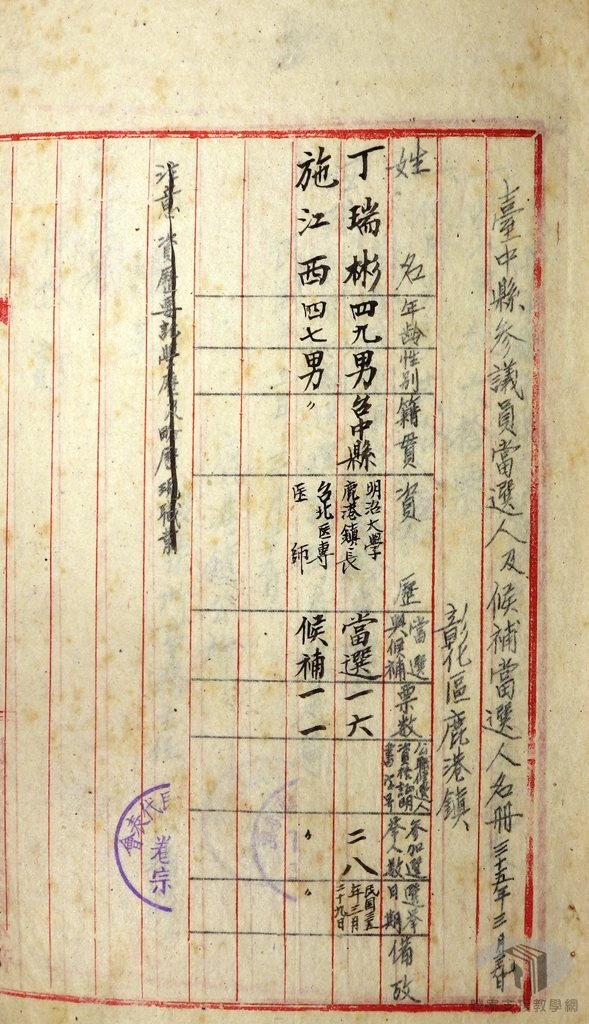 臺中縣參議員當選人及候補當選人名冊 三十五年三月
彰化區鹿港鎮
姓名 年齡 性別 籍貫 資歷 當選與候補 票數 公職候選人資格證明書 參加選舉人數 選舉日期 備攷
丁瑞彬 四九 男 台中縣 明治大學 鹿港鎮長 當選 一六 二八 民國三五年三月二十九日
施江西 四七 男 〃 台北医專 医師 候補 一一 〃 〃
注意 資歷要記學歷及略歷現職業
卷宗